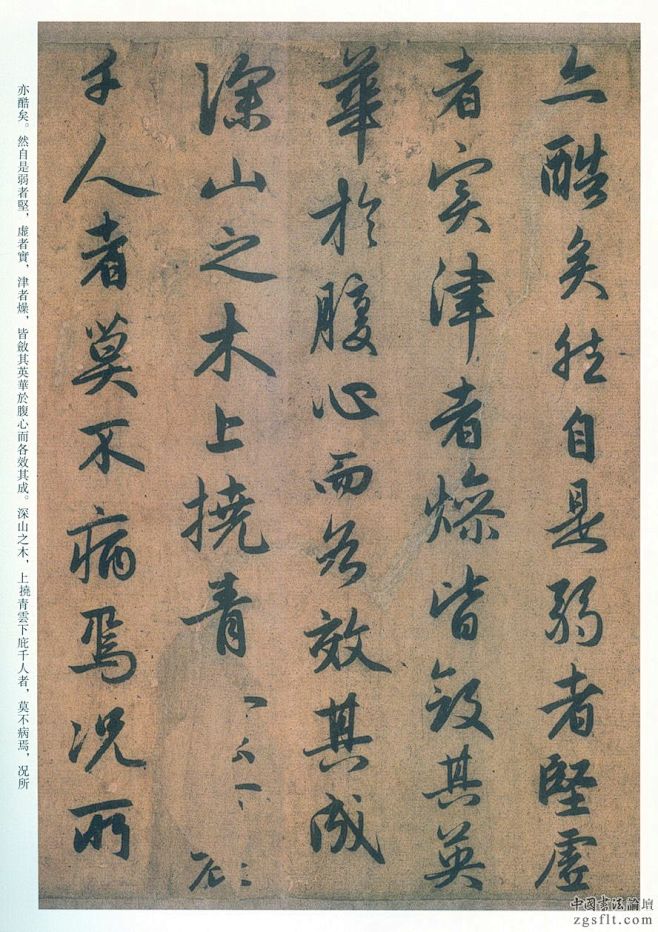 亦酷矣然自是弱者堅虛
者实津者燥皆斂其英
華於腹心而各效其成
深山之木上撓青
千人者莫不病焉况所
亦酷矣。然自是弱者堅,虛者實,津者燥,皆斂其英華於腹心而各效其成。深山之木,上撓青雲下庇千人者,莫不病焉,况所
中國書法論壇
zgsflt.com